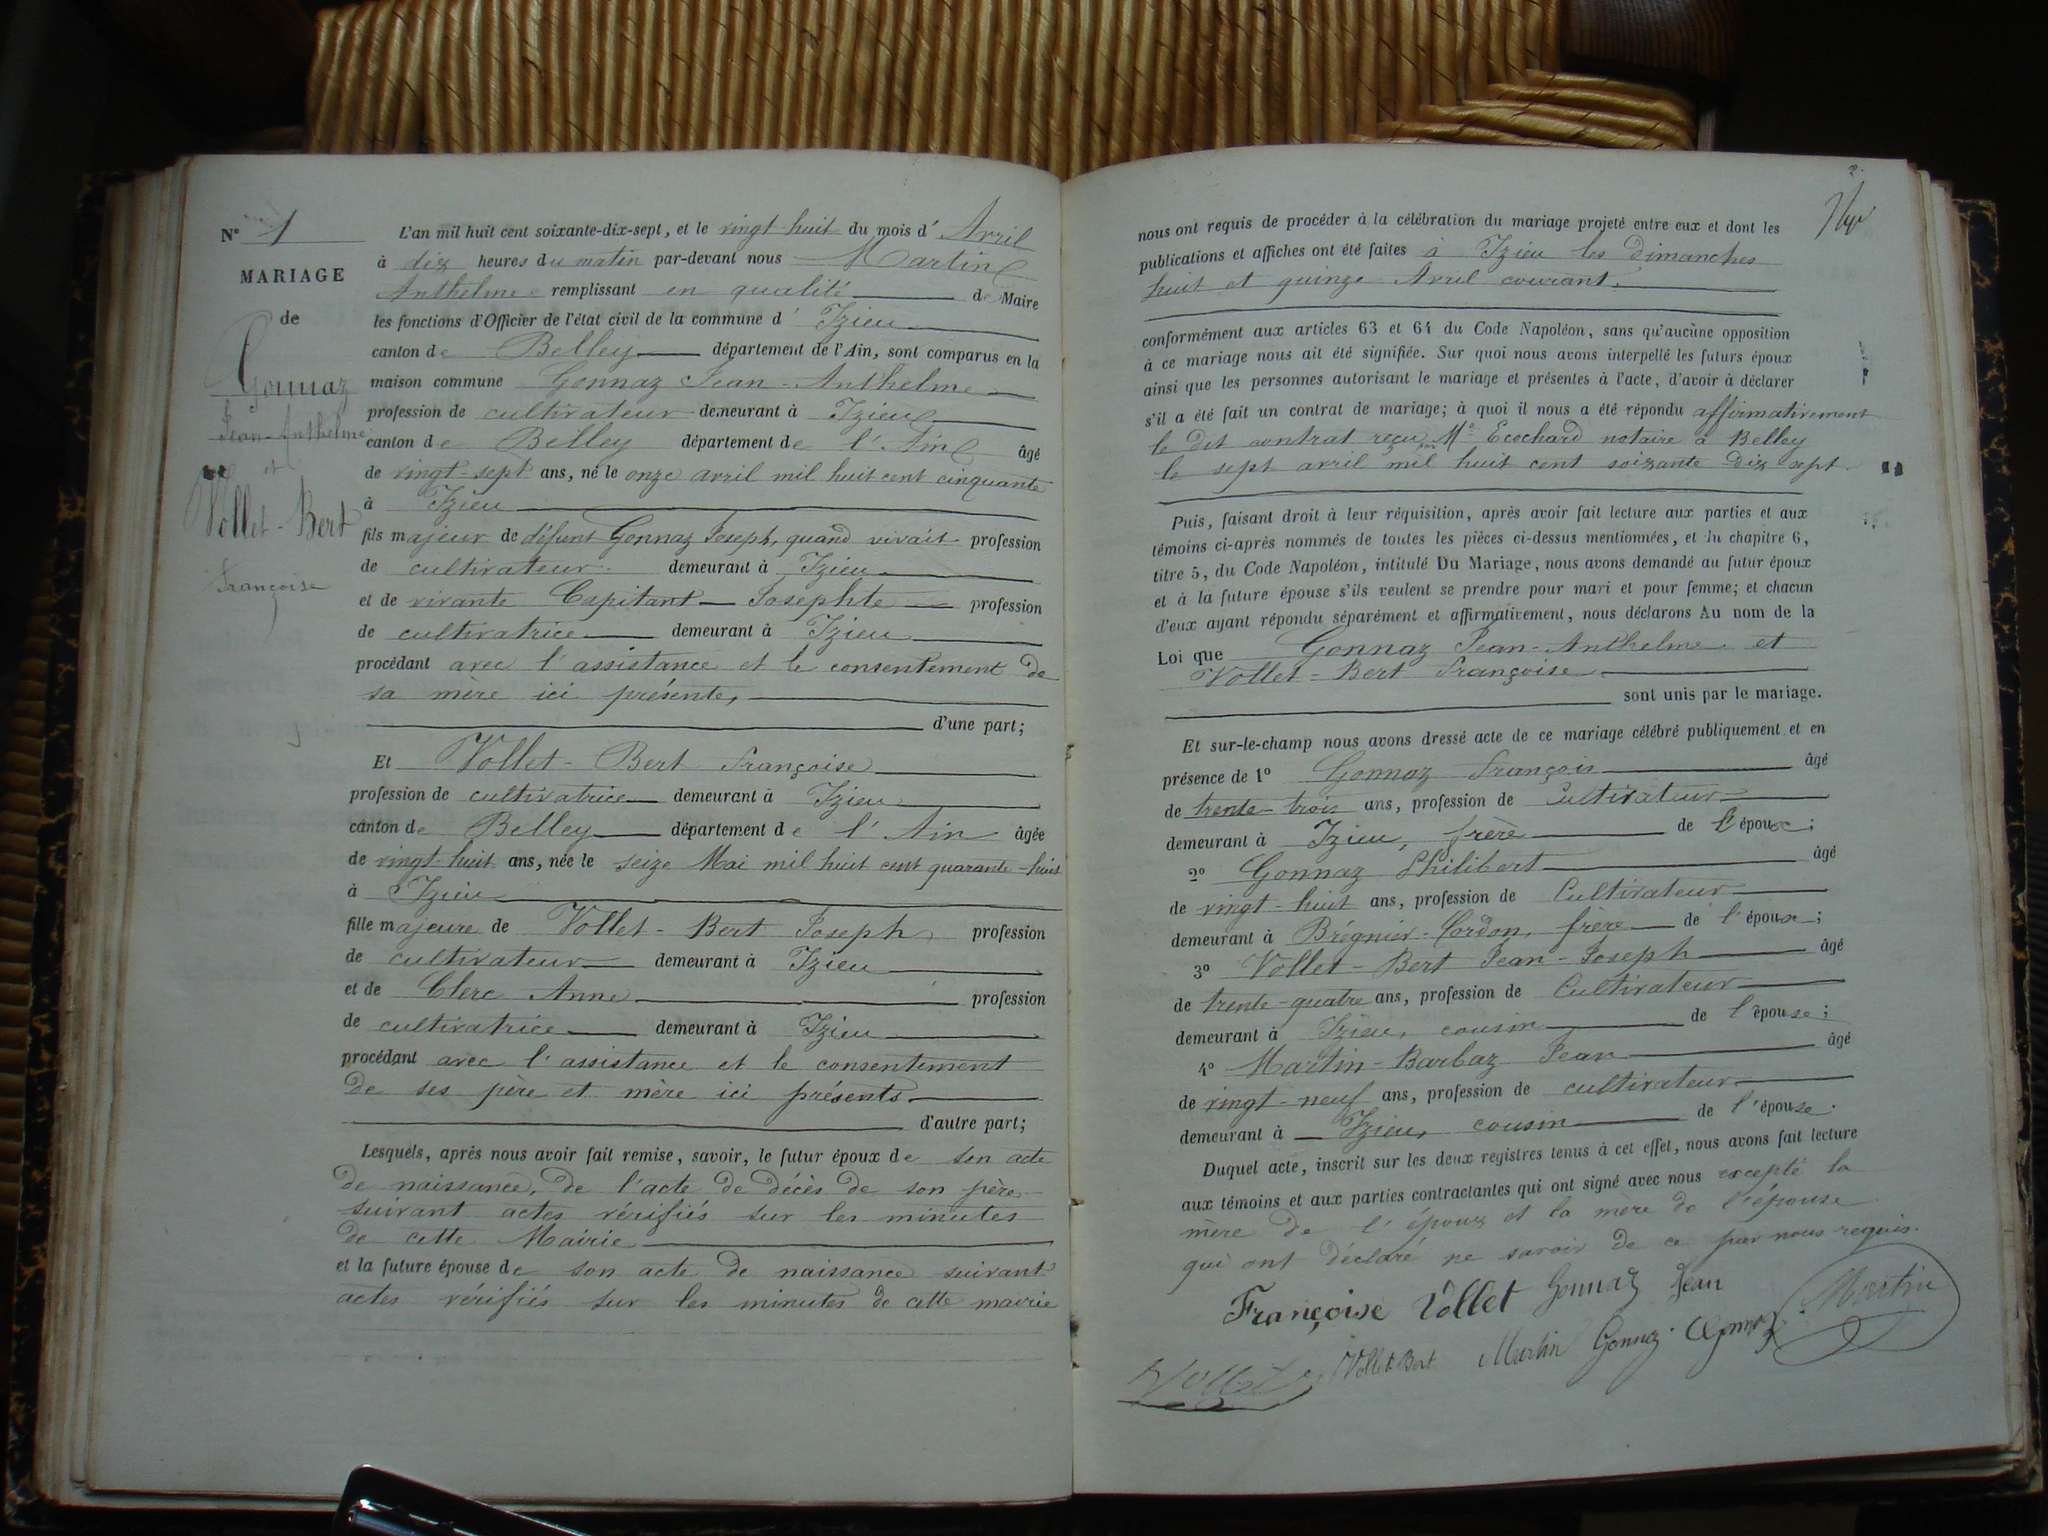 N° 1
MARIAGE
de
Gonnaz
Jean-Anthelme
et
Vollet-Bert
Françoise
L'an mil huit cent soixante-dix-sept, et le vingt-huit du mois d'Avril
à dix heures du matin par-devant nous Martin
Anthelme remplissant en qualité de Maire
les fonctions d'Officier de l'état civil de la commune d'Izieu
canton de Belley département de l'Ain, sont comparus en la
maison commune Gonnaz Jean-Anthelme
profession de cultivateur demeurant à Izieu
canton de Belley département de l'Ain âgé
de vingt-sept ans, né le onze avril mil huit cent cinquante
à Izieu
fils majeur de défunt Gonnaz Joseph, quand vivait profession
de cultivateur demeurant à Izieu
et de vivante Capitant Josephte profession
de cultivatrice demeurant à Izieu
procédant avec l'assistance et le consentement de
sa mère ici présente,
d'une part;
Et Vollet-Bert Françoise
profession de cultivatrice demeurant à Izieu
canton de Belley département de l'Ain âgée
de vingt-huit ans, née le seize Mai mil huit cent quarante-huit
à Izieu
fille majeure de Vollet-Bert Joseph profession
de cultivateur demeurant à Izieu
et de Clerc Anne profession
de cultivatrice demeurant à Izieu
procédant avec l'assistance et le consentement
de ses père et mère ici présents
d'autre part;
Lesquels, après nous avoir fait remise, savoir, le futur époux de son acte
de naissance, de l'acte de décès de son père
suivant actes vérifiés sur les minutes
de cette Mairie
et la future épouse de son acte de naissance suivant
actes vérifiés sur les minutes de cette mairie
2.
nous ont requis de procéder à la célébration du mariage projeté entre eux et dont les
publications et affiches ont été faites à Izieu les Dimanches
huit et quinze Avril courant.
conformément aux articles 63 et 64 du Code Napoléon, sans qu'aucune opposition
à ce mariage nous ait été signifiée. Sur quoi nous avons interpellé les futurs époux
ainsi que les personnes autorisant le mariage et présentes à l'acte, d'avoir à déclarer
s'il a été fait un contrat de mariage; à quoi il nous a été répondu affirmativement
le dit contrat reçu par Me Ecochard notaire à Belley
le sept avril mil huit cent soixante dix sept.
Puis, faisant droit à leur réquisition, après avoir fait lecture aux parties et aux
témoins ci-après nommés de toutes les pièces ci-dessus mentionnées, et du chapitre 6,
titre 5, du Code Napoléon, intitulé Du Mariage, nous avons demandé au futur époux
et à la future épouse s'ils veulent se prendre pour mari et pour femme; et chacun
d'eux ayant répondu séparément et affirmativement, nous déclarons Au nom de la
Loi que Gonnaz Jean-Anthelme et
Vollet-Bert Françoise
sont unis par le mariage.
Et sur-le-champ nous avons dressé acte de ce mariage célébré publiquement et en
présence de 1° Gonnaz François âgé
de trente-trois ans, profession de Cultivateur
demeurant à Izieu, frère de l'époux;
2° Gonnaz Philibert âgé
de vingt-huit ans, profession de Cultivateur
demeurant à Brégnier-Cordon, frere de l'époux;
3° Vollet-Bert Jean-Joseph âgé
de trente-quatre ans, profession de Cultivateur
demeurant à Izieu, cousin de l'épouse;
4° Martin-Barbaz Jean âgé
de vingt-neuf ans, profession de cultivateur
demeurant à Izieu, cousin de l'épouse.
Duquel acte, inscrit sur les deux registres tenus à cet effet, nous avons fait lecture
aux témoins et aux parties contractantes qui ont signé avec nous excepté la
mère de l'époux et la mère de l'épouse
qui ont déclaré ne savoir de ce par nous requis.
Françoise Vollet Gonnaz Jean Martin
Vollet Vollet-Bert Martin Gonnaz Gonnaz